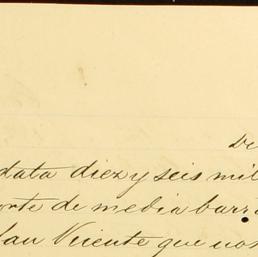 De
data diez y seis mil
orte de media barr
San Vicente que nos